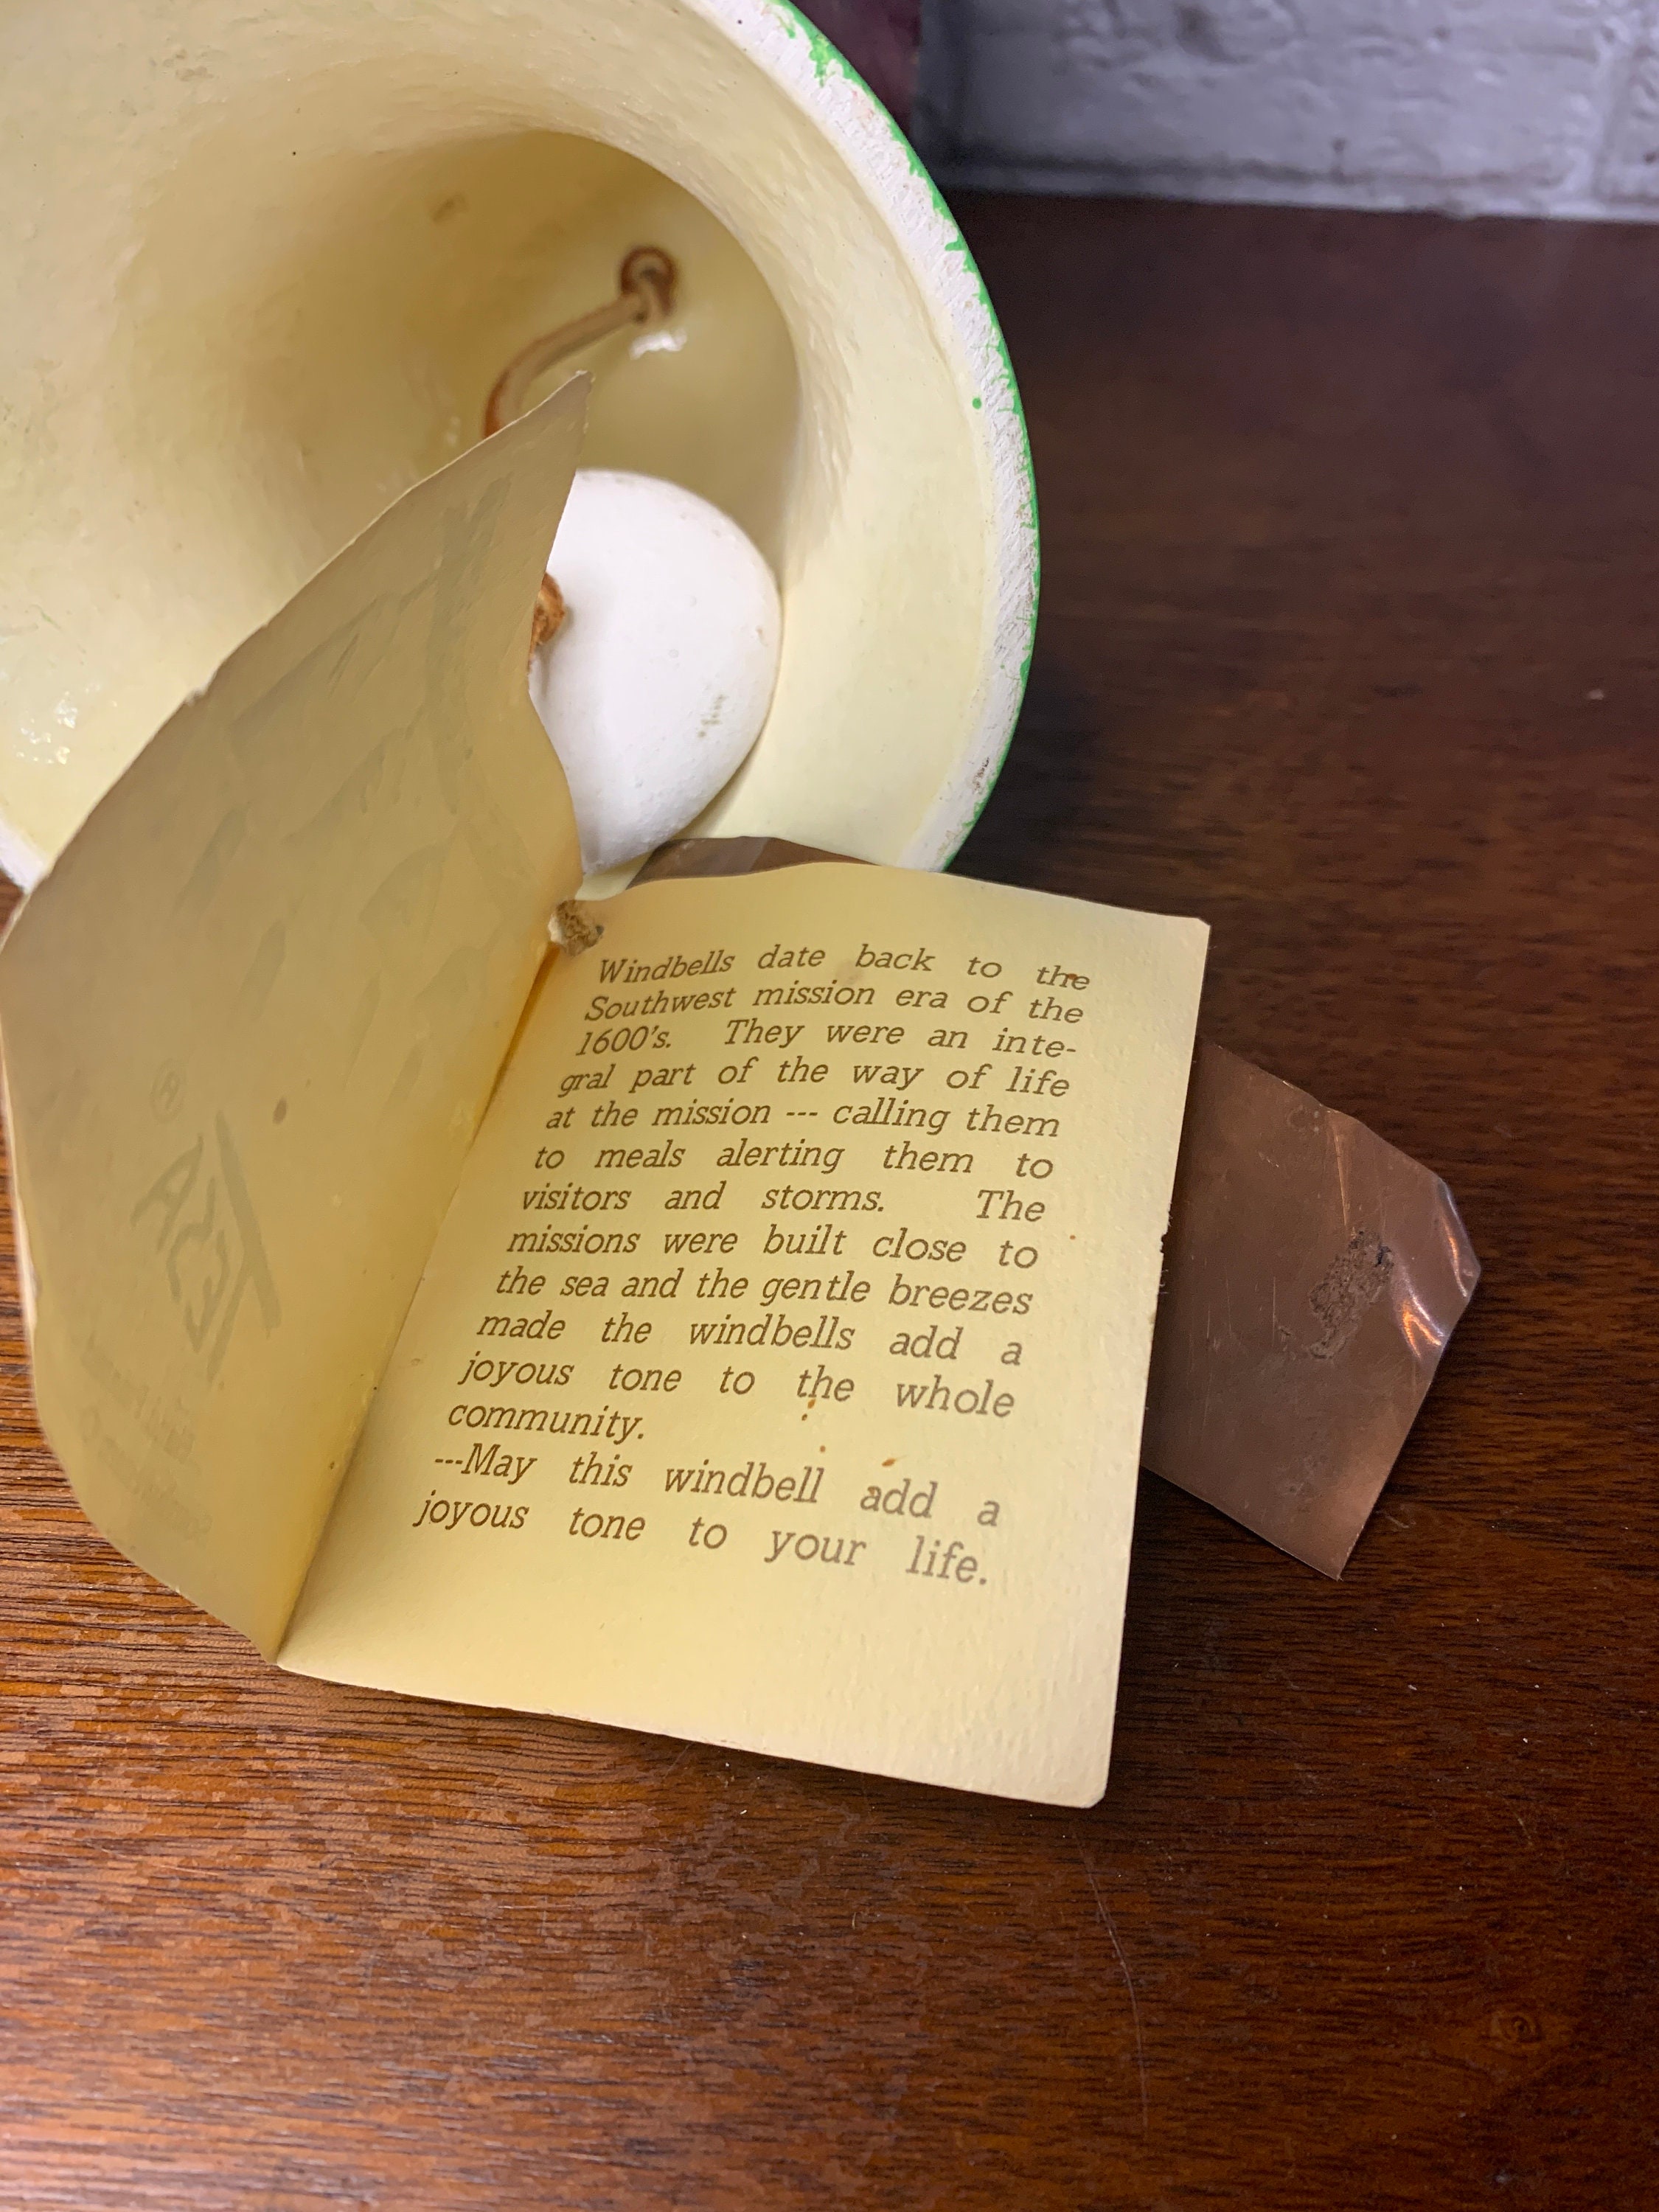 Windbells date back to the
Southwest mission era of the
1600's. They were an inte-
gral part of the way of life
at the mission --- calling them
to meals alerting them to
visitors and storms. The
missions were built close to
the sea and the gentle breezes
made the windbells add a
joyous tone to the whole
community.
---May this windbell add a
joyous tone to your life.